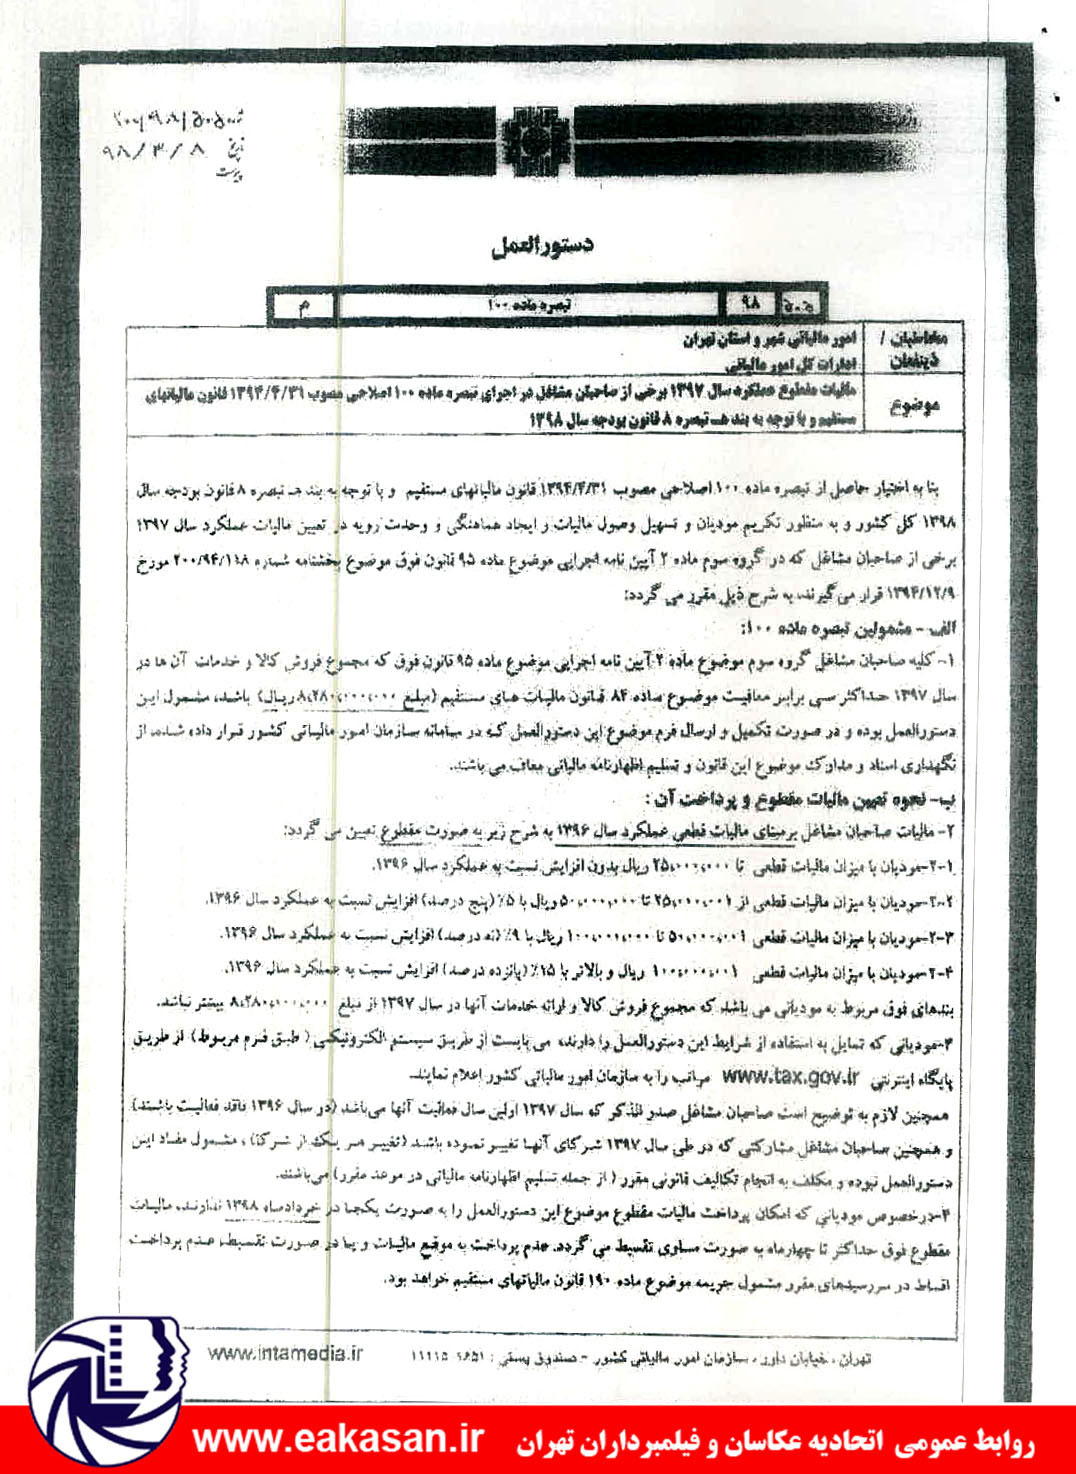 شماره: ۲۰۰/۹۸/
تاریخ ۹۸/۳/۸
پیوست
دستورالعمل
۹۸ تبصره ماده ۱۰۰ م
مخاطبان / ذینفعان
امور مالیاتی شهر و استان تهران
ادارات کل امور مالیاتی
موضوع
مالیات مقطوع عملکرد سال ۱۳۹۷ برخی از صاحبان مشاغل در اجرای تبصره ماده ۱۰۰ اصلاحی مصوب ۱۳۹۴/۴/۳۱ قانون مالیاتهای
مستقیم و با توجه به بند هـ تبصره ۸ قانون بودجه سال ۱۳۹۸
بنا به اختیار حاصل از تبصره ماده ۱۰۰ اصلاحی مصوب ۱۳۹۴/۴/۳۱ قانون مالیاتهای مستقیم و با توجه به بند هـ تبصره ۸ قانون بودجه سال
۱۳۹۸ کل کشور و به منظور تکریم مودیان و تسهیل وصول مالیات و ایجاد هماهنگی و وحدت رویه در تعیین مالیات عملکرد سال ۱۳۹۷
برخی از صاحبان مشاغل که در گروه سوم ماده ۲ آیین نامه اجرایی موضوع ماده ۹۵ قانون فوق موضوع بخشنامه شماره ۲۰۰/۹۴/۱۱۸ مورخ
۱۳۹۴/۱۲/۹ قرار می گیرند، به شرح ذیل مقرر می گردد:
الف - مشمولین تبصره ماده ۱۰۰:
۱- کلیه صاحبان مشاغل گروه سوم موضوع ماده ۲ آیین نامه اجرایی موضوع ماده ۹۵ قانون فوق که مجموع فروش کالا و خدمات آن ها در
سال ۱۳۹۷ حداکثر سی برابر معافیت موضوع ماده ۸۴ قانون مالیات های مستقیم (مبلغ ۸،۲۸۰،۰۰۰،۰۰۰ ریال) باشد، مشمول این
دستورالعمل بوده و در صورت تکمیل و ارسال فرم موضوع این دستورالعمل که در سامانه سازمان امور مالیاتی کشور قرار داده شده، از
نگهداری اسناد و مدارک موضوع این قانون و تسلیم اظهارنامه مالیاتی معاف می باشند.
ب- نحوه تعیین مالیات مقطوع و پرداخت آن :
۲- مالیات صاحبان مشاغل برمبنای مالیات قطعی عملکرد سال ۱۳۹۶ به شرح زیر به صورت مقطوع تعیین می گردد:
۲-۱-مودیان با میزان مالیات قطعی تا ۲۵،۰۰۰،۰۰۰ ریال بدون افزایش نسبت به عملکرد سال ۱۳۹۶.
۲-۲-مودیان با میزان مالیات قطعی از ۲۵،۰۰۰،۰۰۱ تا ۵۰،۰۰۰،۰۰۰ ریال با ۵٪ (پنج درصد) افزایش نسبت به عملکرد سال ۱۳۹۶.
۲-۳-مودیان با میزان مالیات قطعی ۵۰،۰۰۰،۰۰۱ تا ۱۰۰،۰۰۰،۰۰۰ ریال با ۹٪ (نه درصد) افزایش نسبت به عملکرد سال ۱۳۹۶.
۲-۴-مودیان با میزان مالیات قطعی ۱۰۰،۰۰۰،۰۰۱ ریال و بالاتر با ۱۵٪ (پانزده درصد) افزایش نسبت به عملکرد سال ۱۳۹۶.
بندهای فوق مربوط به مودیانی می باشد که مجموع فروش کالا و ارائه خدمات آنها در سال ۱۳۹۷ از مبلغ ۸،۲۸۰،۰۰۰،۰۰۰ بیشتر نباشد.
۳-مودیانی که تمایل به استفاده از شرایط این دستورالعمل را دارند، می بایست از طریق سیستم الکترونیکی ( طبق فرم مربوط) از طریق
پایگاه اینترنتی www.tax.gov.ir مراتب را به سازمان امور مالیاتی کشور اعلام نمایند.
همچنین لازم به توضیح است صاحبان مشاغل صدر الذکر که سال ۱۳۹۷ اولین سال فعالیت آنها می‌باشد (در سال ۱۳۹۶ فاقد فعالیت باشند)
و همچنین صاحبان مشاغل مشارکتی که در طی سال ۱۳۹۷ شرکای آنها تغییر نموده باشد (تغییر هر یک از شرکا) ، مشمول مفاد این
دستورالعمل نبوده و مکلف به انجام تکالیف قانونی مقرر ( از جمله تسلیم اظهارنامه مالیاتی در موعد مقرر) می‌باشند.
۴-درخصوص مودیانی که امکان پرداخت مالیات مقطوع موضوع این دستورالعمل را به صورت یکجا در خردادماه ۱۳۹۸ ندارند، مالیات
مقطوع فوق حداکثر تا چهارماه به صورت مساوی تقسیط می گردد. عدم پرداخت به موقع مالیات و یا در صورت تقسیط، عدم پرداخت
اقساط در سررسیدهای مقرر مشمول جریمه موضوع ماده ۱۹۰ قانون مالیاتهای مستقیم خواهد بود.
تهران ، خیابان داور ، سازمان امور مالیاتی کشور - صندوق پستی : ۱۶۵۱ ۱۱۱۱۵ www.intamedia.ir
روابط عمومی اتحادیه عکاسان و فیلمبرداران تهران www.eakasan.ir